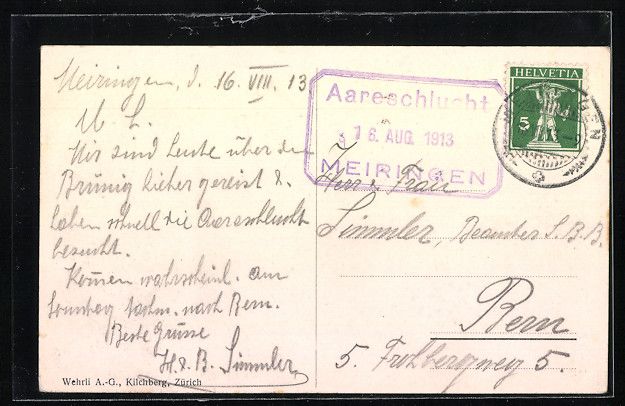 Meiringen, d. 16. VIII. 13
M. L.
Wir sind heute über den
Brünig hieher gereist &
haben schnell die Aareschlucht
besucht.
Kommen wahrscheinl. am
Sonntag nachm. nach Bern.
Beste Grüsse
H. & B. Simmler
Wehrli A.-G., Kilchberg, Zürich
Aareschlucht
16. AUG. 1913
MEIRINGEN
HELVETIA
5
Herr & Frau
Simmler, Beamter S.B.B.
Bern
5. Frohbergweg 5.